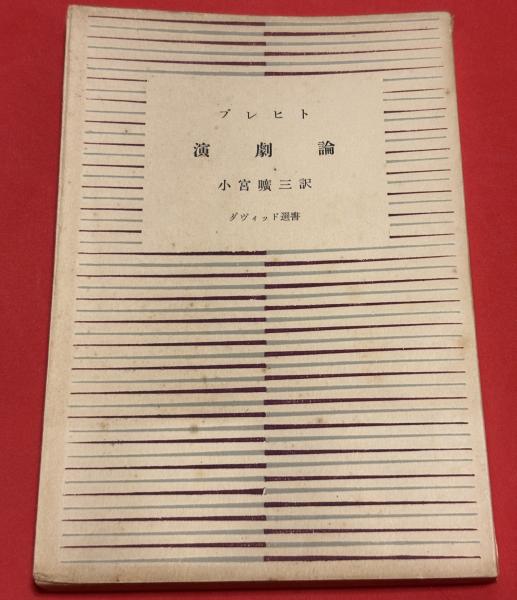 ブレヒト
演劇論
小宮曠三訳
ダヴィッド選書